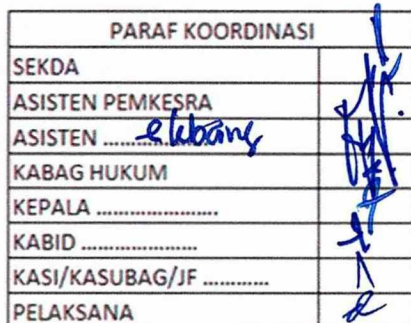 PARAF KOORDINASI
SEKDA
ASISTEN PEMKESRA
ASISTEN ..................
KABAG HUKUM
KEPALA ......................
KABID .....................
KASI/KASUBAG/JF ............
PELAKSANA